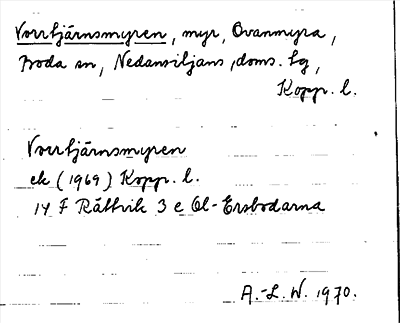 Vorrtjärnsmyren, myr, Ovanmyra,
Boda sn, Nedansiljans, doms. hg,
Kopp. l.
Vorrtjärnsmyren
ek (1969) Kopp. l.
14 F Rättvik 3 e Ol-Ersbodarna
A.-L. W. 1970.